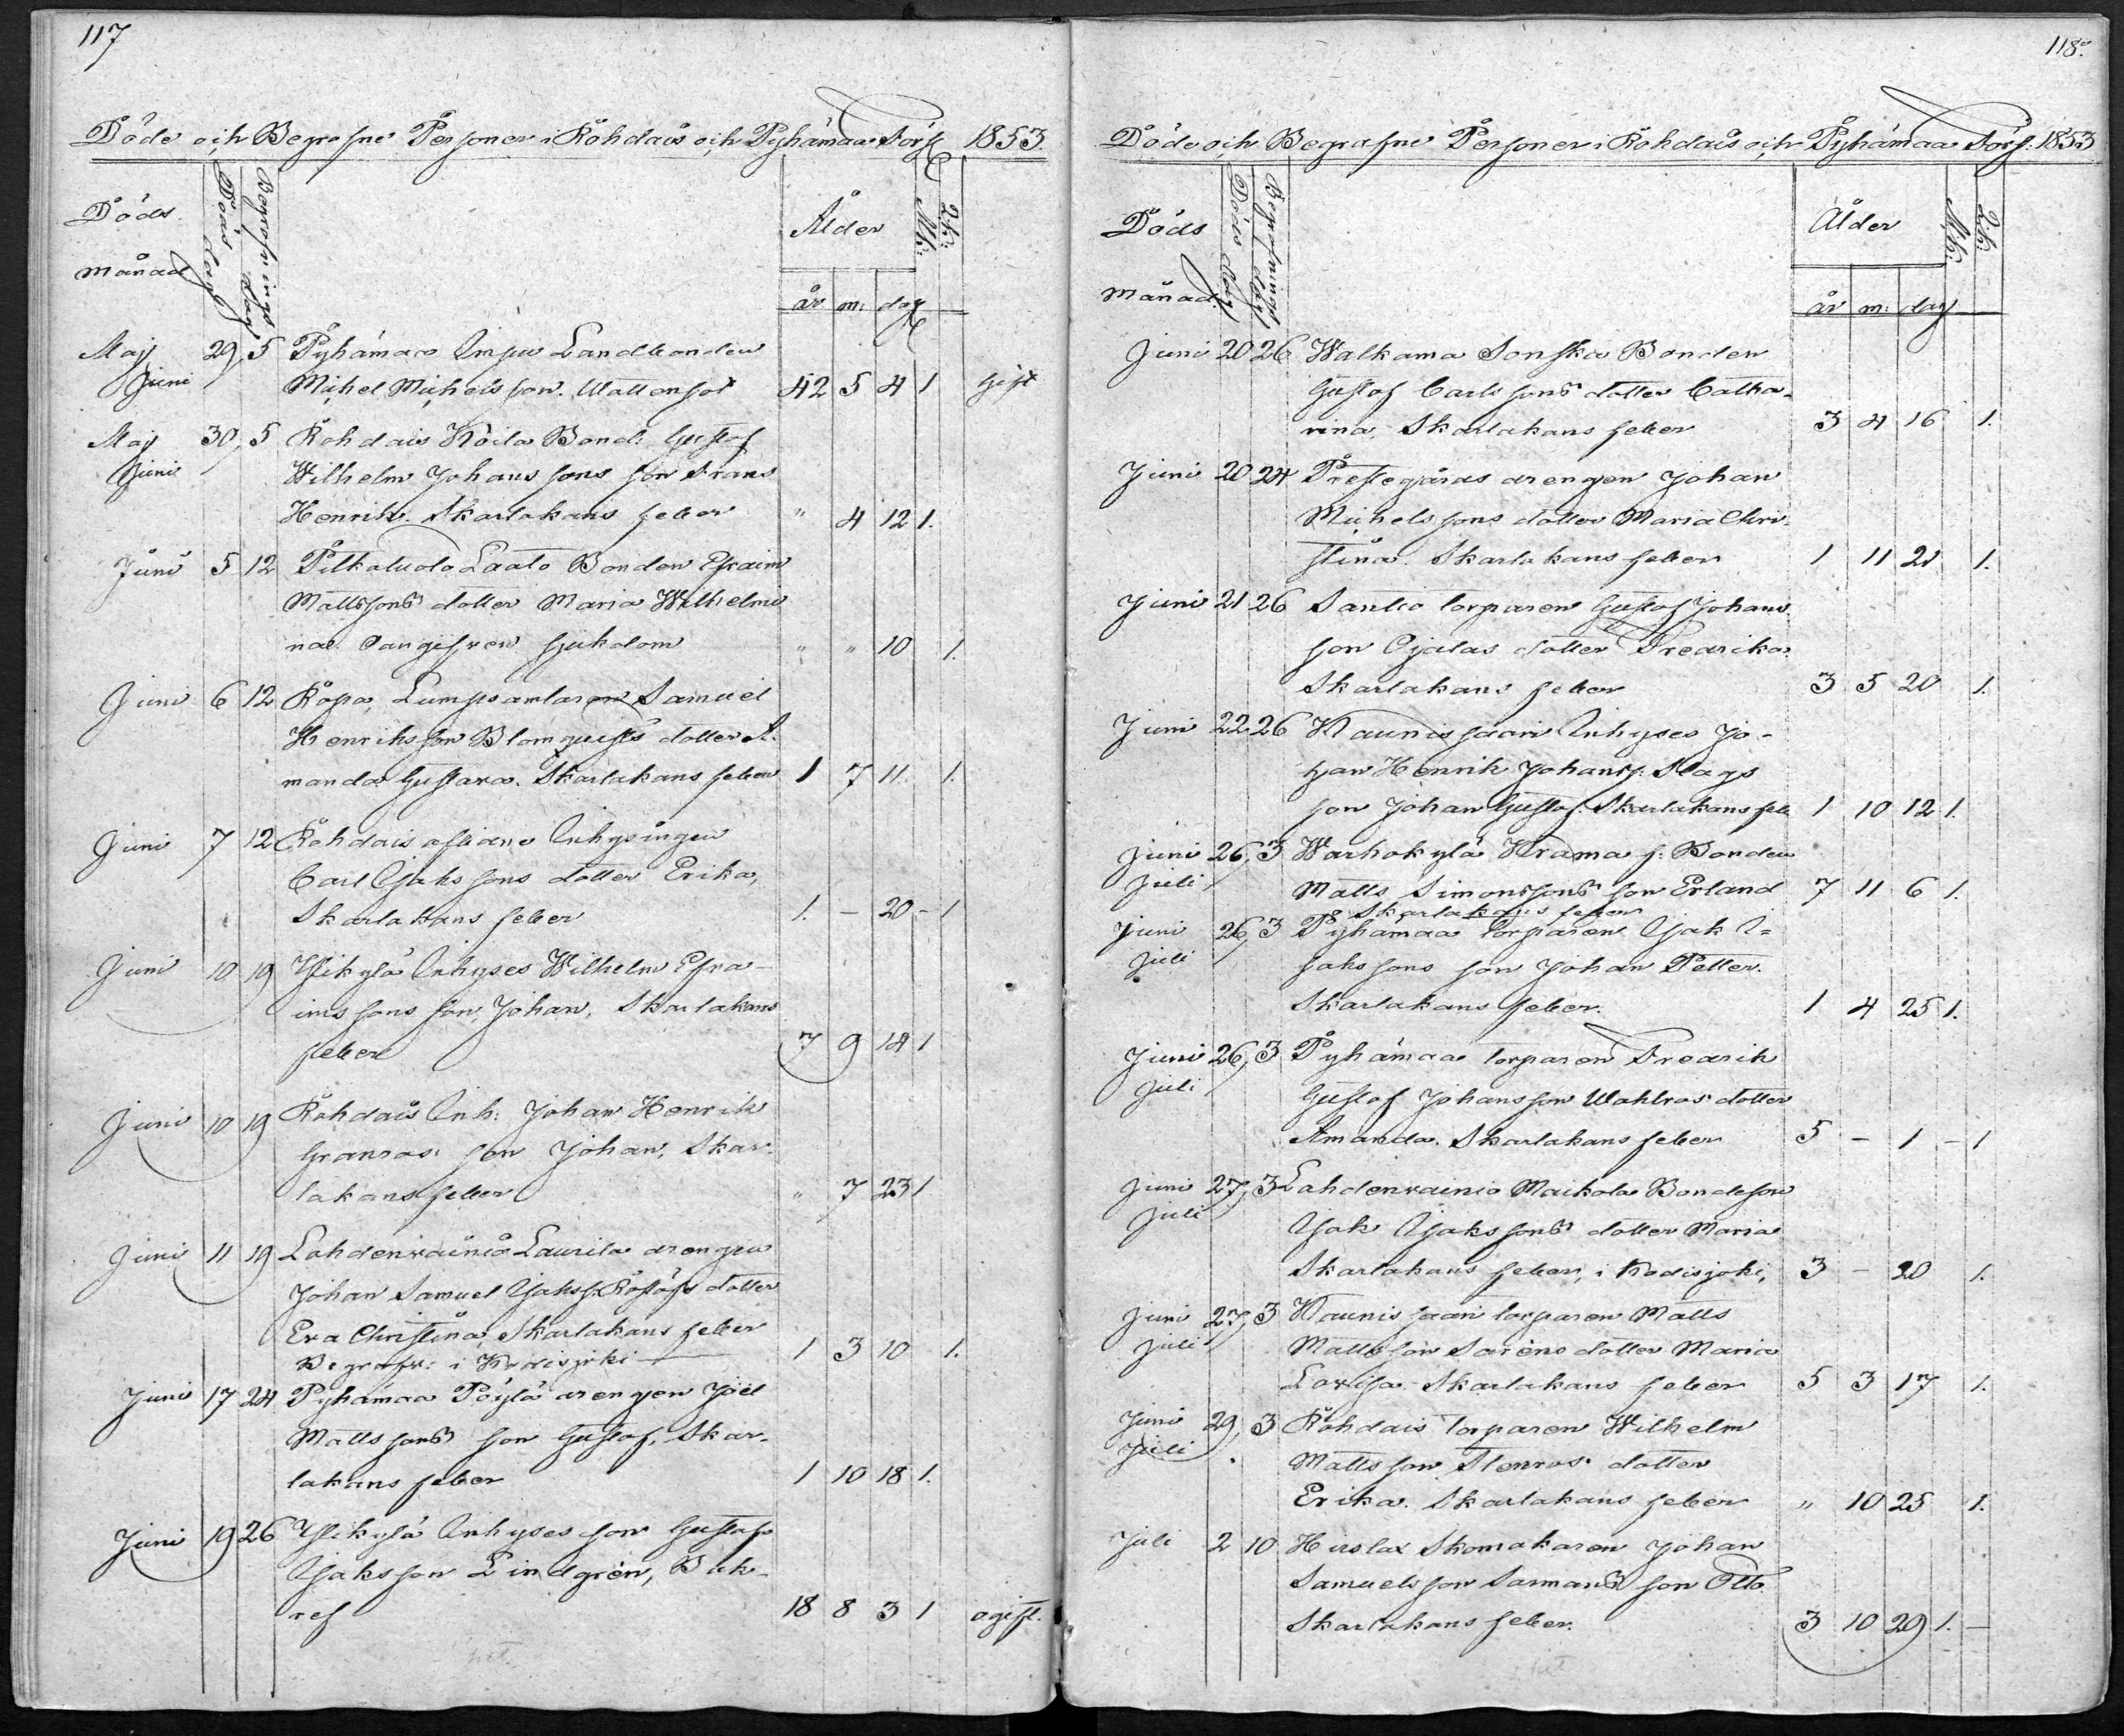 117
Döde och Begrafne Personer i Rohdais och Pyhämaa Förs: 1853.
Döds månad Döds dag Begrafnings dag Ålder Mk: Qk:
år m: dag
Maji 29, 5 Pyhämaa Landbonden
Juni Michel Michelsson. Wattensot 42 5 4 1 gift
Maji 30, 5 Rohdais Koila Bond: Gustaf
Juni Wilhelm Johanssons son Frans
Henrik. Skarlakans feber " 4 12 1.
Juni 5 12 Pitkäluoto Laato Bonden Efraim
Mattssons dotter Maria Wilhelmi
na. Oangifven sjukdom " " 10 1.
Juni 6 12 Ropa, Lumpsamlaren Samuel
Henriksson Blomquists dotter A.
manda Gustava. Skarlakans feber 1 7 11. 1.
Juni 7 12 Rohdais Inhysingen
Carl Isakssons dotter Erika,
Skarlakans feber 1. - 20 - 1
Juni 10 19 Ylikylä Inhyses Wilhelm Efra-
imssons son, Johan, Skarlakans
feber 7 9 14 1
Juni 10 19 Rohdais Inh: Johan Henrik
Granros: son Johan, Skar-
lakans feber " 7 23 1
Juni 11 19 Lahdenvainio Laurila drengen
Johan Samuel Isakss: dotter
Eva Christina, Skarlakans feber 1 3 10 1.
Begrafv: i Kodisjoki
Juni 17 24 Pyhämaa Pöylä drengen Joel
Mattssons son Gustaf, Skar-
lakans feber 1 10 18 1.
Juni 19 26 Ylikylä Inhyses son Gustaf
Isaksson Lindgrén, Buk-
ref 18 8 3 1 ogift.
118.
Döde och Begrafne Personer i Rohdais och Pyhämaa Förs: 1853
Döds månad Döds dag Begrafnings dag Ålder Mk: Qk:
år m: dag
Juni 20 26 Walkama Sonska Bonden
Gustaf Carlssons dotter Catha-
rina, Skarlakans feber 3 4 16 1.
Juni 20 24 Prestegårds drengen Johan
Michelssons dotter Maria Chri-
stina. Skarlakans feber 1 11 21 1.
Juni 21 26 Santio torparen Gustaf Johans
son Ojalas dotter Fredrika.
Skarlakans feber 3 5 20 1.
Juni 22 26 Kaunissaari Inhyses Jo-
han Henrik Johanss: Slags
son Johan Gustaf. Skarlakans feb 1 10 12 1.
Juni 26, 3 Warhokylä Krama s: Bonden
Juli Matts Simonssons son Erland 7 11 6 1.
Skarlakans feber
Juni 26, 3 Pyhämaa torparen Isak I=
Juli sakssons son Johan Petter.
Skarlakans feber. 1 4 25 1.
Juni 26, 3 Pyhämaa torparen Fredrik
Juli Gustaf Johansson Wahlros dotter
Amanda. Skarlakans feber 5 - 1 - 1
Juni 27, 3 Lahdenvainio Maikola Bondeson
Juli Isak Isakssons dotter Maria
Skarlakans feber, i Kodisjoki, 3 - 20 1.
Juni 27, 3 Kaunissaari torparen Matts
Juli Mattsson Saréns dotter Maria
Lovisa. Skarlakans feber 5 3 17 1.
Juni 29, 3 Rohdais torparen Wilhelm
Juli Mattsson Stenros dotter
Erika. Skarlakans feber " 10 25 1.
Juli 2 10 Hirslax Skomakaren Johan
Samuelsson Sarmans son Otto.
Skarlakans feber. 3 10 29 1. -